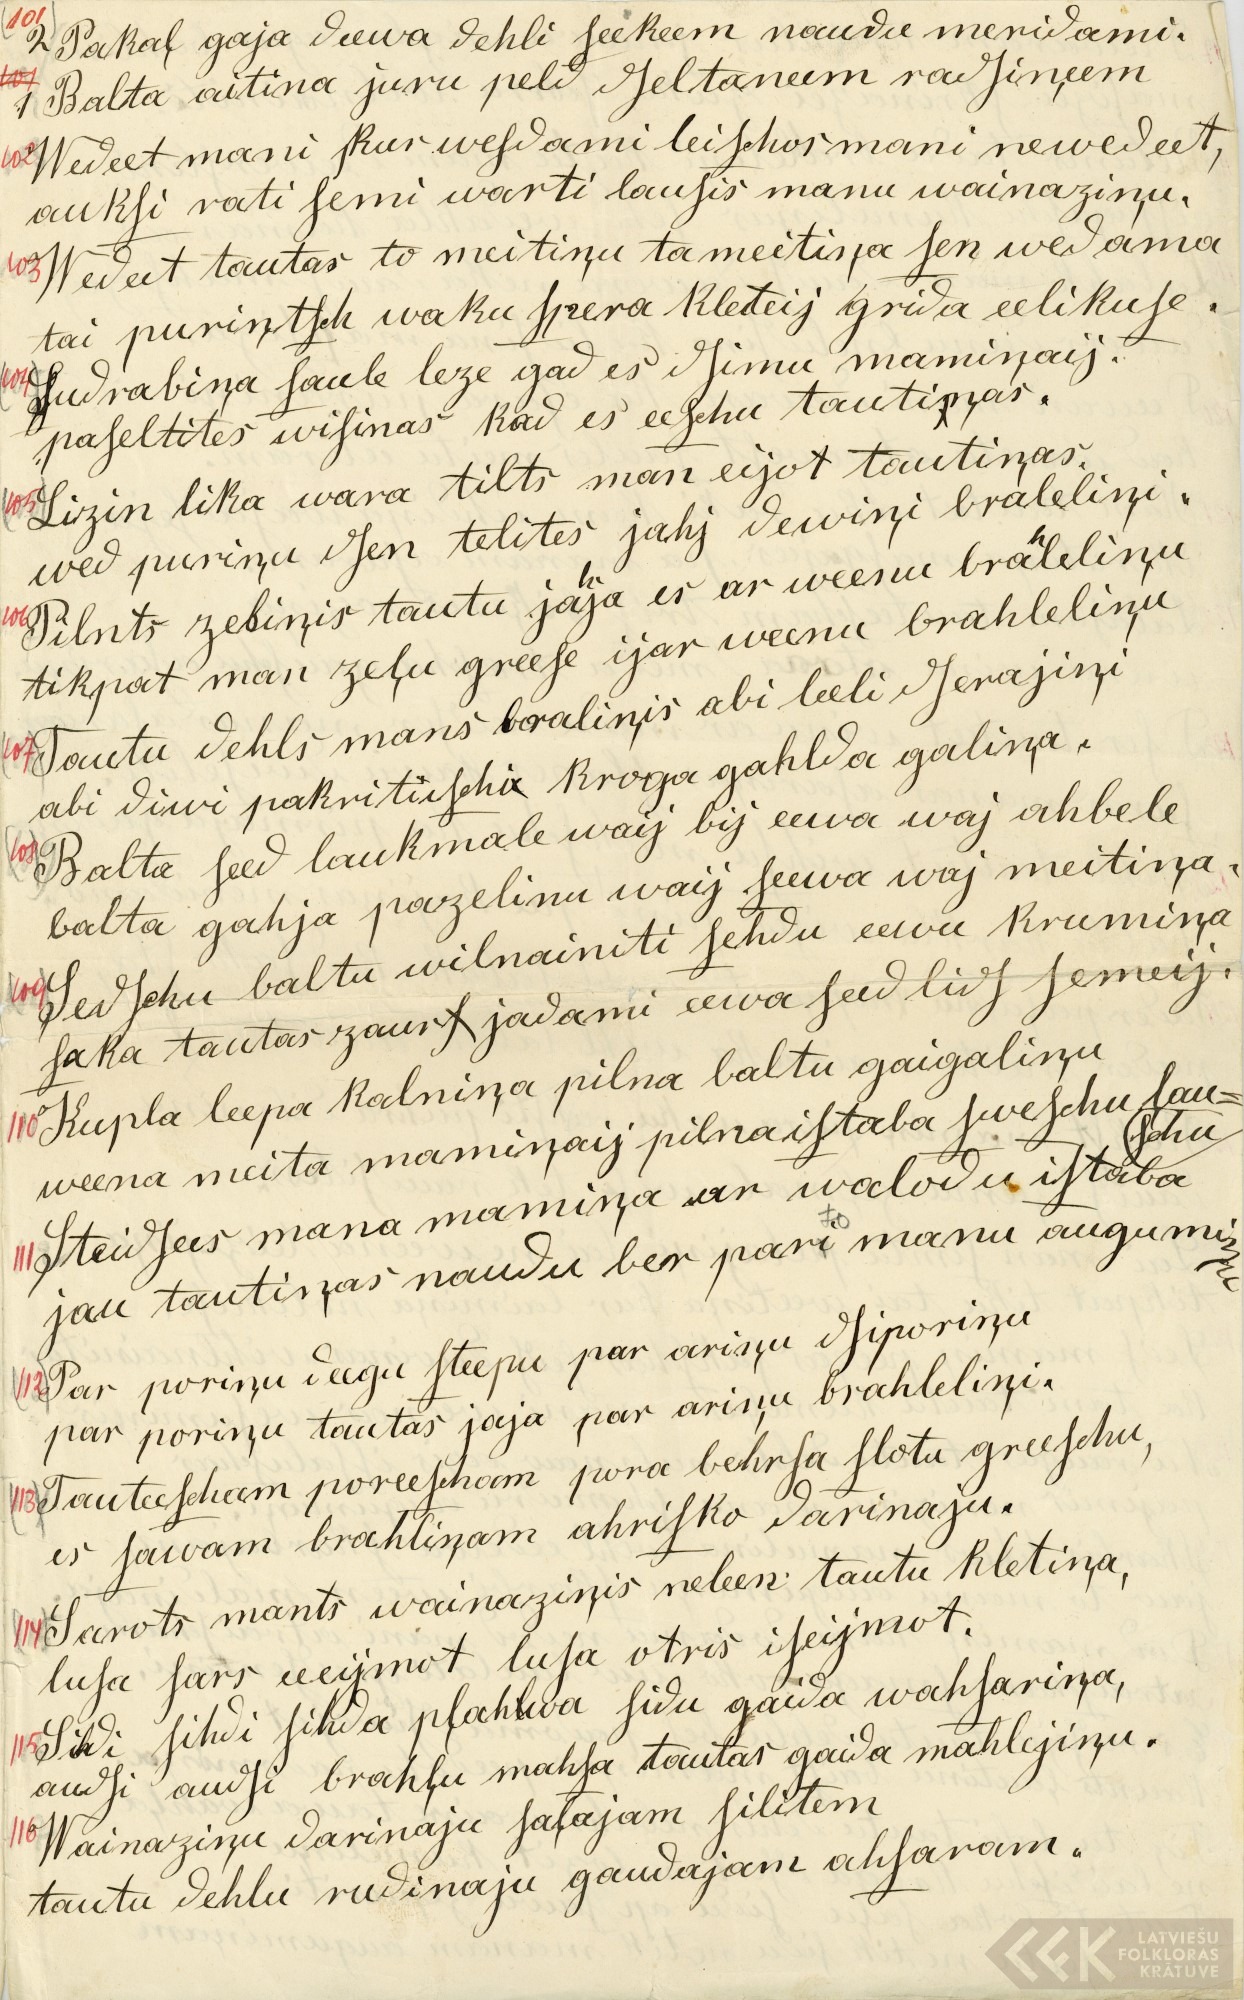 (101
2 Pakaļ gaja deewa dehli seekeem naudu meridami.
101
1 Balta aitina juru peld dseltaneem radsiņeem
102 Wedeet mani kur wesdami leischos mani newedeet,
auksi rati semi warti lausis manu wainaziņu.
103 Wedeet tautas to meitiņu ta meitiņa sen wedama
tai puriņtsch waku spera kleteij grida eelikuse.
(104) Sudrabiņa saule leze gad es dsimu mamiņaij.
paseltites wisinas kad es eeschu tautiņas.
(105) Lizin lika wara tilts man eijot tautiņas.
wed puriņu dsen telites jahj dewiņi braleliņi.
106 Pilnts zeliņis tautu jahja es ar weenu brahleliņu
tikpat man zeļu greese ijar weenu brahleliņu
(107) Tautu dehls mans braliņis abi leeli dserajiņi
abi diwi pakrituschi kroga gahlda galiņa.
(108) Balta seed laukmale waij bij eewa waj ahbele
balta gahja pazelinu waij seewa waj meitiņa.
(109) Sedschu baltu wilnainiti sehdu eewu krumiņa
saka tautas zaur jadami eewa seed lids semeij.
110 Kupla leepa kalniņa pilna baltu gaigaliņu
weena meita mamiņaij pilna istaba sweschu lau=
(schu
111 Steidsees mana mamiņa ar walodu istaba
jau tautiņas naudu ber par to manu augumiņu
(112) Par poriņu deegu steepu par ariņu dsiporiņu
par poriņu tautas jaja par ariņu brahleliņi.
(113) Tauteescham poreescham pora behrsa slotu greeschu,
es sawam brahliņam ahrisko darinaju.
(114) Sarots mants wainaziņis neleen tautu kletiņa,
lusa sars eeijmot lusa otris iseijmot.
115 Sihdi sihdi sihda pļahwa sidu gaida wahsariņa,
audsi audsi brahļu mahsa tautas gaida mahlejiņu.
116 Wainaziņu darinaju saļajam silitem
tautu dehlu rudinaju gaudajam ahsaram.
LATVIEŠU
FOLKLORAS
KRĀTUVE